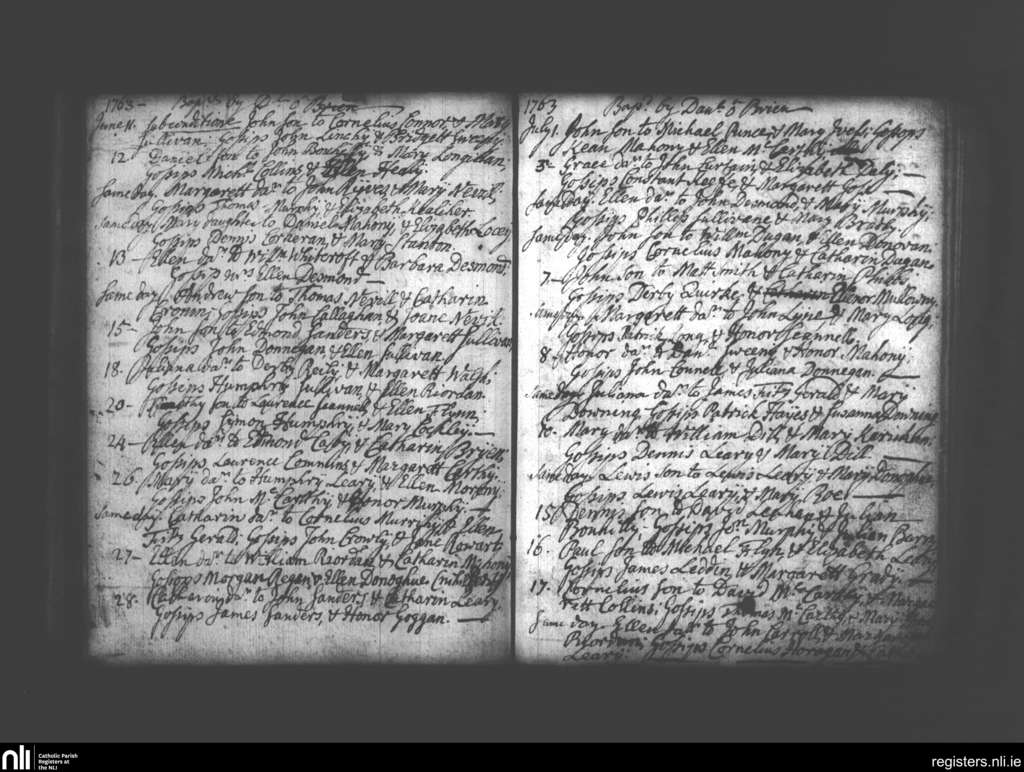 1763 - Bapts. by Dt. o Brien
June 11. Subconditione John Son to Cornelius Connor & Mary
Sullivan. Gosips John Linchy & Bridgett
12 Daniel Son to John & Mary Longidan.
Gosips Collins & Ellen Healy.
Same day. Margarett dar. to John Reeves & Mary Nevil.
Gosips Thomas Murphy, & Elizabeth Kealiher
Same day Mary daughter to Daniel Mahony, & Elizabeth Lacey
Gosips Dennis Corkeran & Mary Stanton.
13 - Ellen dar. to Willm Whytcroft & Barbara Desmond
Gosips Ellen Desmond -
Same day Andrew son to Thomas Nevill & Catharin
Cronin; Gosips John Callaghan & Joane Nevil.
15 - John son to Edmond Sanders & Margarett Sullivan,
Gosips John Donnegan & Ellen Sullivan.
18. Juliana dar. to Derby & Margarett Walsh.
Gosips Humphry Sullivan, & Ellen Riordan.
20 - Timothy son to Laurence Jeannell & Ellen Flynn.
Gosips Symon Humphry, & Mary Cockley. -
24 - Ellen dar. to Edmond & Catharin
Gosips Laurence Commins, & Margarett Carthy.
26. Mary dar. to Humphry Leary, & Ellen
Gosips John McCarthy & Honor Murphy. -
Same day. Catharin dar. to Cornelius Murphy & Ellen
Fitz Gerald. Gosips John Crowly & Jane
27 - Ellen dar. to William Riordan, & Catharin Mahony
Gosips Morgan Regan & Ellen Donoghue
28. dar. to John Sanders & Catharin Leary.
Gosips James Sanders, & Honor Goggan. -
1763 Bapts. by Danl. o Brien
July 1. John son to Michael Punce & Mary Gosips
Kean Mahony & Ellen McCarthy
3 - Grace dar. to John Curtain, & Elizabeth Daly;
Gosips Constant Keefe & Margarett Goss -
Same day. Ellen dar. to John Desmond, & Mary Murphy.
Gosips Philip Sullivane, & Mary Brusby
Same day. John son to Willem Dugan & Ellen Donovan.
Gosips Cornelius Mahony & Catharin Dugan
7 - John son to Matt Smith & Catharin
Gosips Derby Quirke & Elenor Mullowny
Same day Margarett dar. to John Lyne & Mary
Gosips Patrick Long, & Honor Jeannell.
8. Honor dar. to Danl. Sweeny & Honor Mahony.
Gosips John Connell & Juliana Donnegan. -
Same day Juliana dar. to James FitzGerald & Mary
Downing Gosips Patrick Hayes & Susanna Downing
10. Mary dar. to William Dill, & Mary
Gosips Dennis Leary & Mary Dill -
Same day Lewis son to Lewis Leary & Mary Donoghue
Gosips Lewis Leary, & Mary Boe -
15 Dennis son to David Leehan & Julian
Gosips Jon. Murphy & Julian Barry
16. Paul son to Michael Flyn & Elizabeth
Gosips James Leddin & Margarett Grady. -
17. Cornelius son to David McCarthy, &
Fitt Collins. Gosips Thomas McCarthy & Mary
Same day. Ellen dar. to John Carroll & Margarett
Riordan Gosips Cornelius Horagan, &
Leary.
nli Catholic Parish
Registers at
the NLI
registers.nli.ie